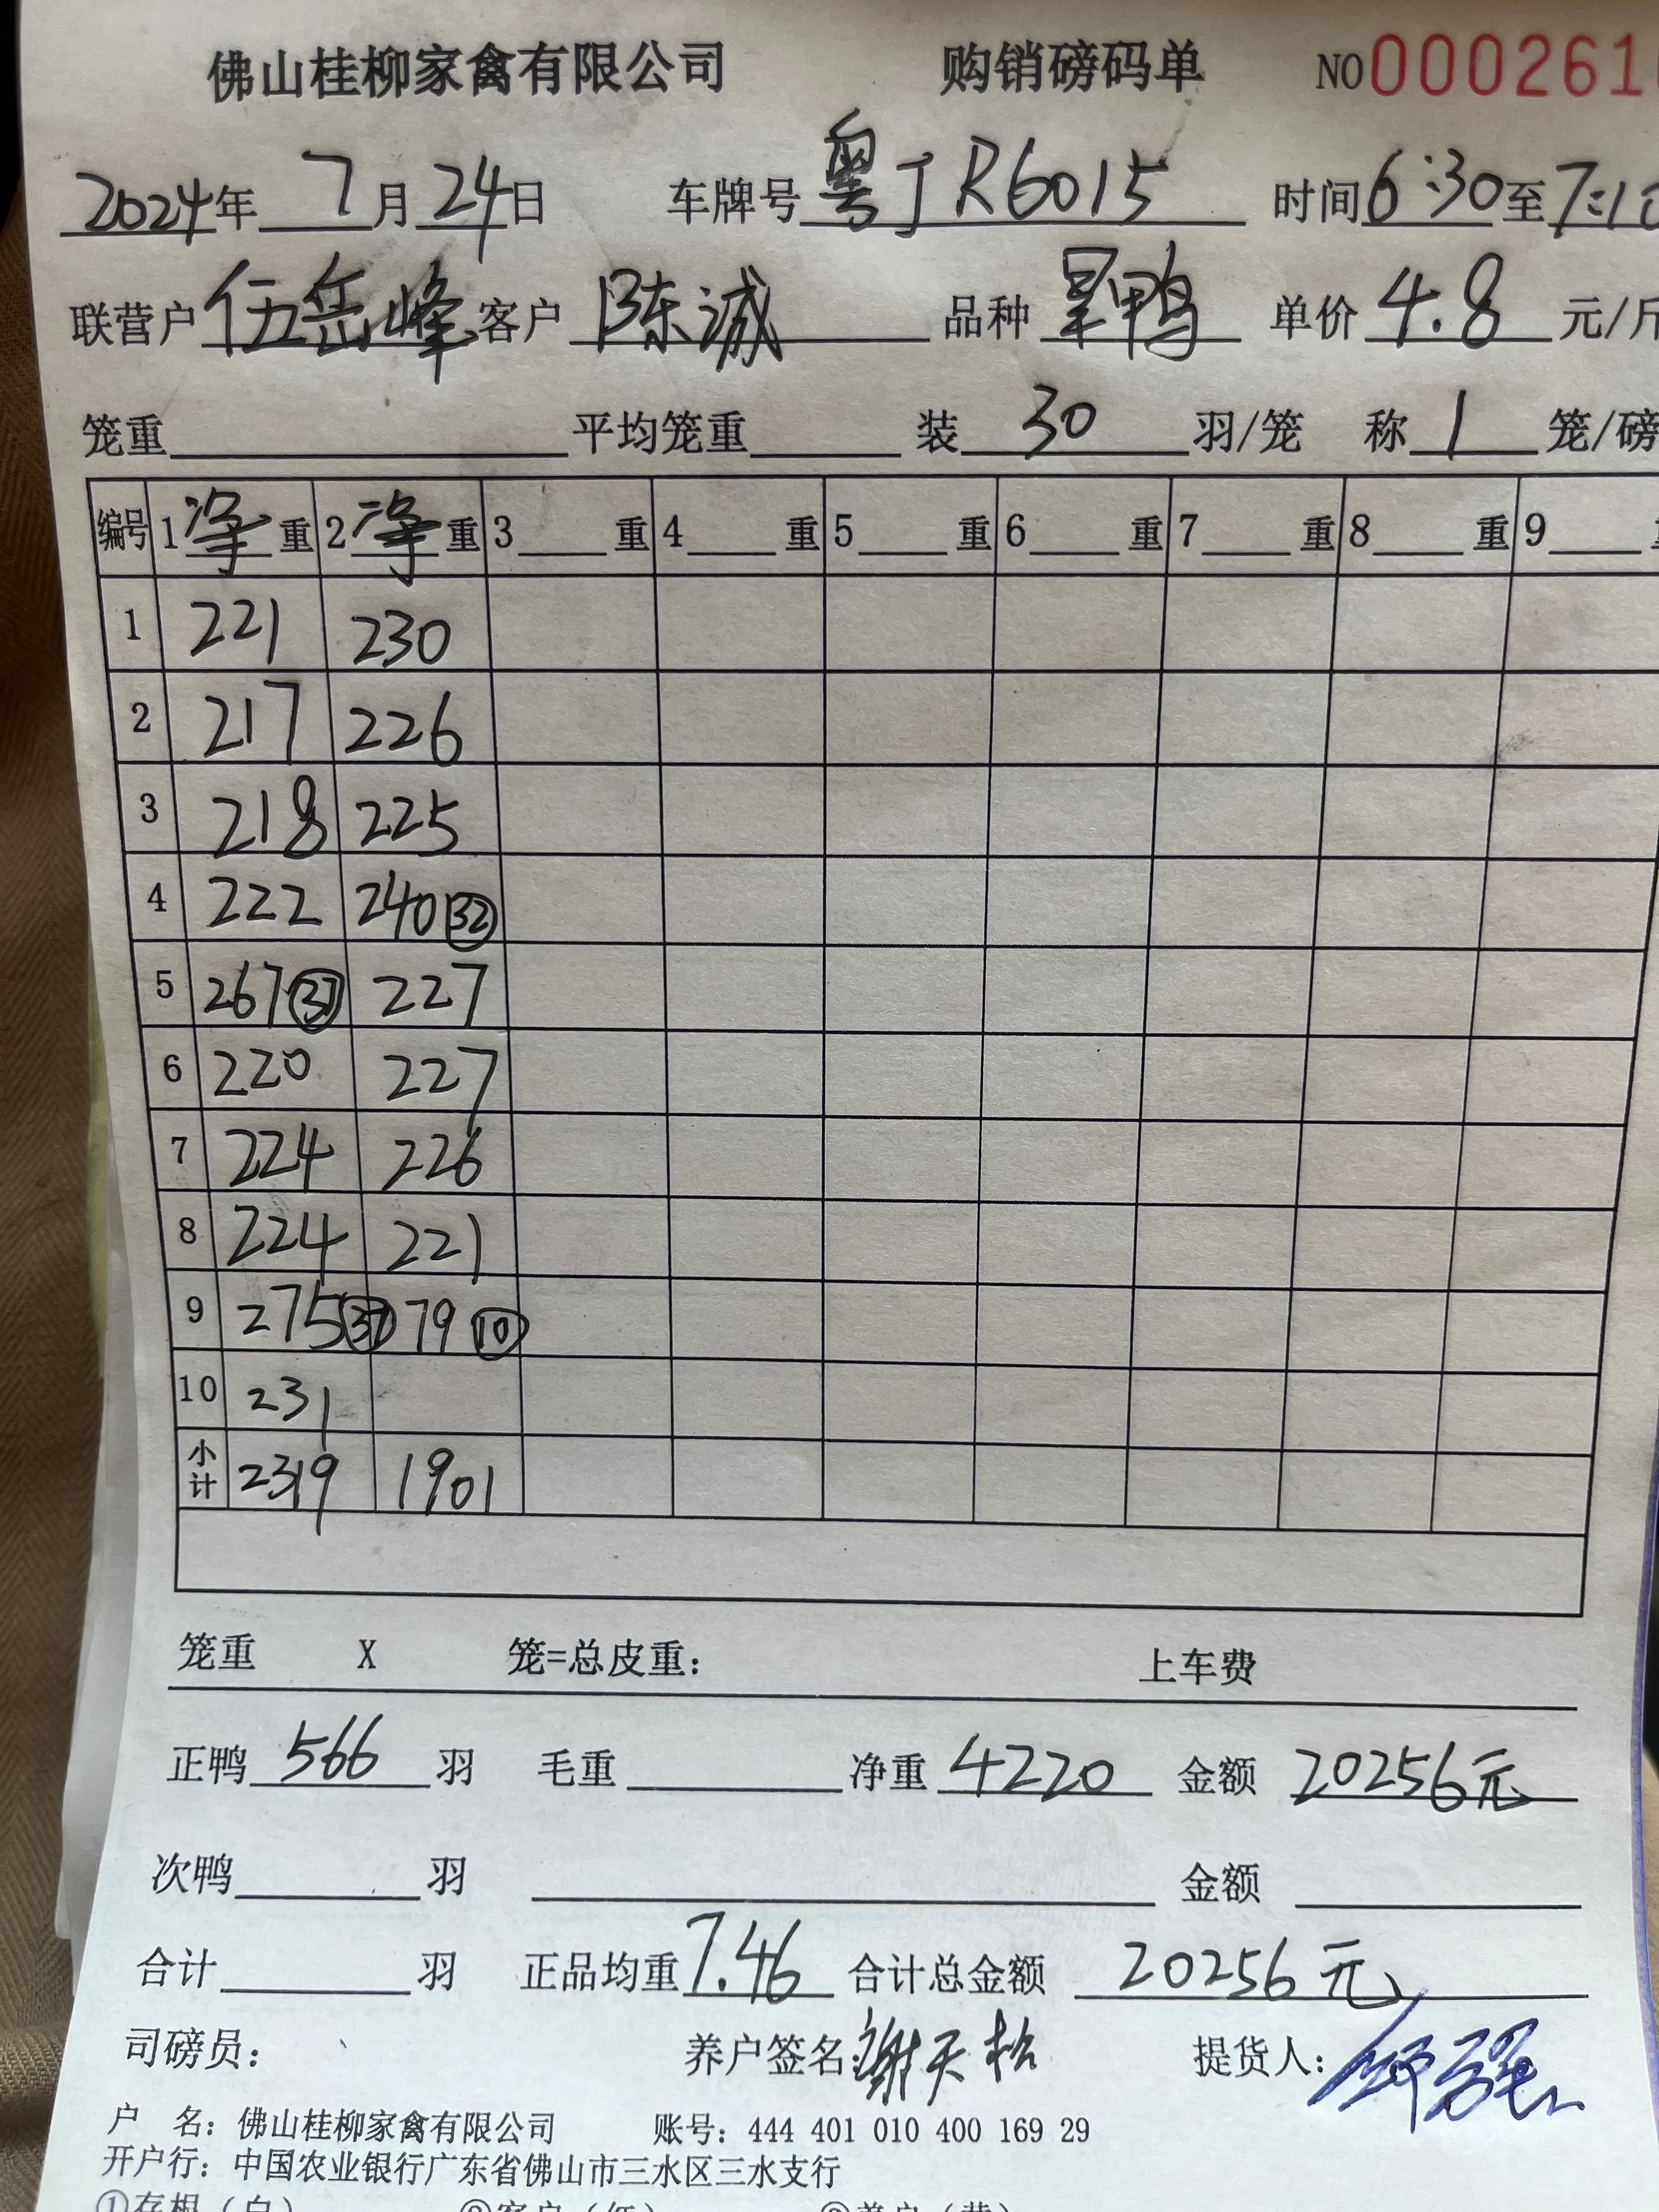 佛山桂柳家禽有限公司 购销磅码单 NO 0002616
2024年 7月 24日 车牌号 粤J R6015 时间 6:30 至 7:10
联营户 伍岳峰 客户 陈诚 品种 旱鸭 单价 4.8 元/斤
笼重 平均笼重 装 30 羽/笼 称 1 笼/磅
编号 1 净 重 2 净 重 3 重 4 重 5 重 6 重 7 重 8 重 9
1 221 230
2 217 226
3 218 225
4 222 240 32
5 267 37 227
6 220 227
7 224 226
8 224 221
9 275 37 79 10
10 231
小计 2319 1901
笼重 X 笼=总皮重: 上车费
正鸭 566 羽 毛重 净重 4220 金额 20256元
次鸭 羽 金额
合计 羽 正品均重 7.46 合计总金额 20256元
司磅员: 养户签名: 谢天松 提货人:
户 名: 佛山桂柳家禽有限公司 账号: 444 401 010 400 169 29
开户行: 中国农业银行广东省佛山市三水区三水支行
①存根(白) ②客户(红) ③养户(黄)